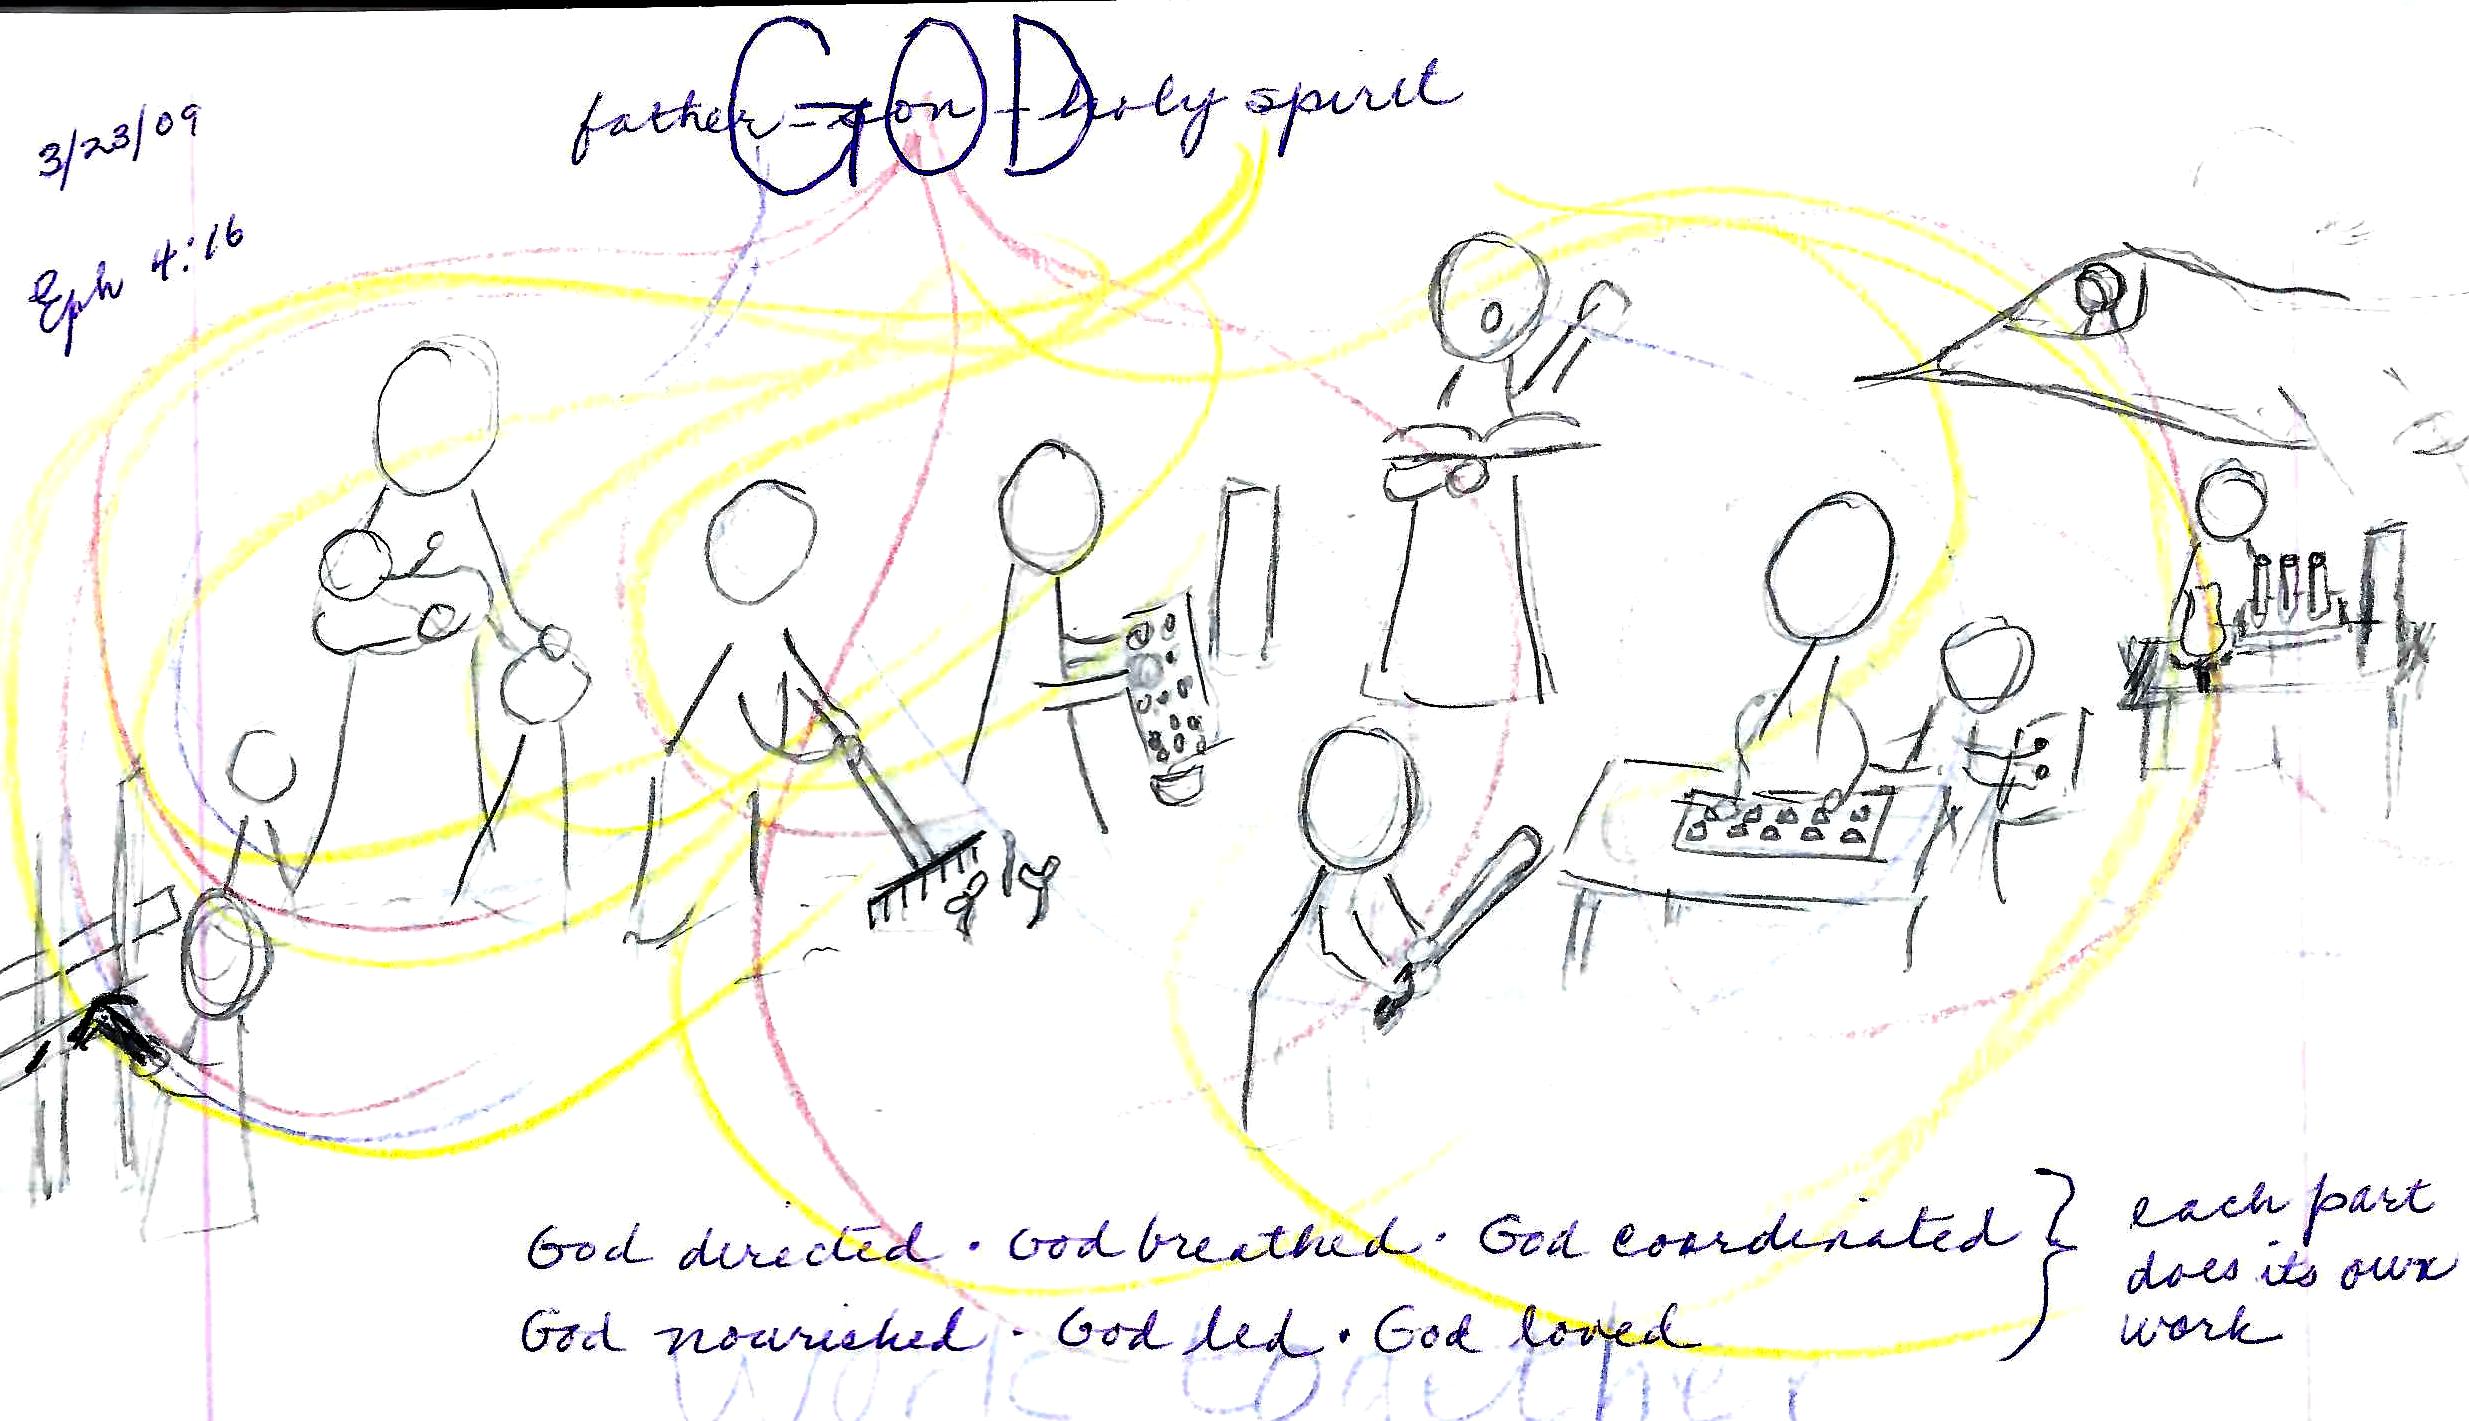 GOD
father - son - holy spirit
3/23/09
Eph 4:16
God directed · God breathed · God coordinated } each part
does its own
God nourished · God led · God loved
work
work together